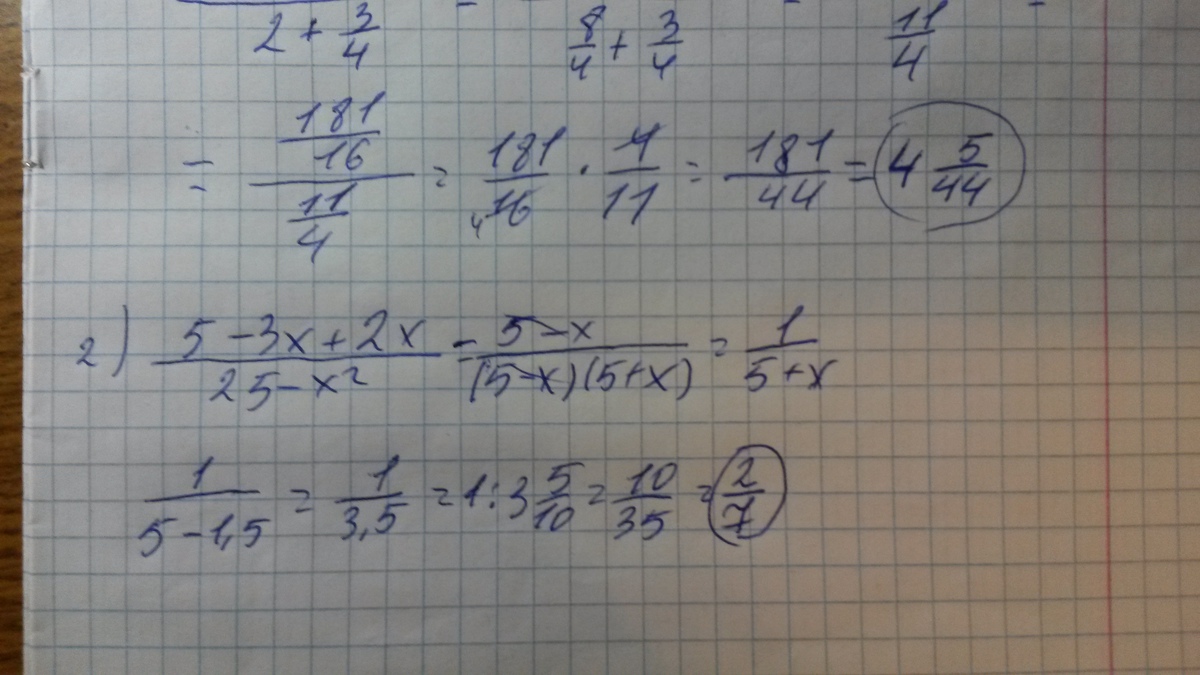 2 + 3/4 = 8/4 + 3/4 = 11/4 =
= (181/16)/(11/4) = 181/16 · 4/11 = 181/44 = 4 5/44
2) (5-3x+2x)/(25-x²) = (5-x)/((5-x)(5+x)) = 1/(5+x)
1/(5-1,5) = 1/3,5 = 1:3 5/10 = 10/35 = 2/7